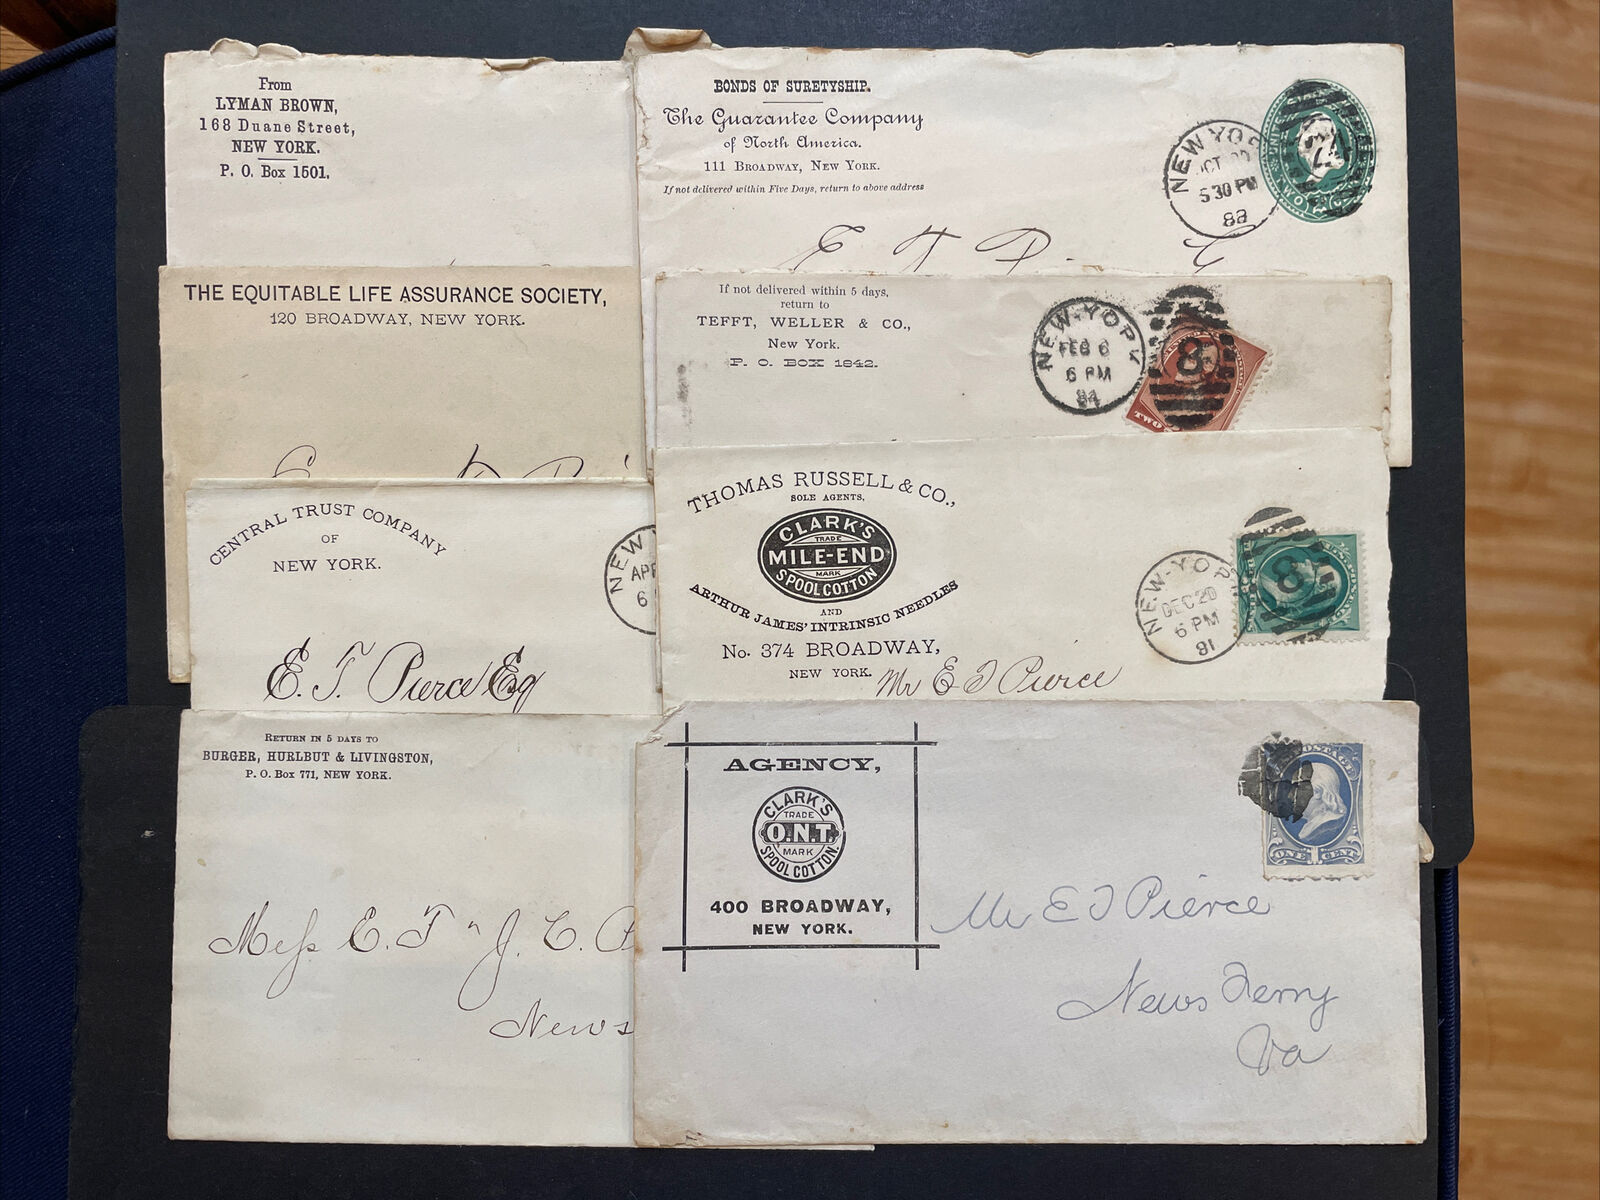 From
LYMAN BROWN,
168 Duane Street,
NEW YORK.
P. O. Box 1501.
THE EQUITABLE LIFE ASSURANCE SOCIETY,
120 BROADWAY, NEW YORK.
CENTRAL TRUST COMPANY
OF
NEW YORK.
NEW Y
APR
6
E. F. Pierce Esq
RETURN IN 5 DAYS TO
BURGER, HURLBUT & LIVINGSTON,
P. O. Box 771, NEW YORK.
Mess E. F " J. C. P
News
BONDS OF SURETYSHIP.
The Guarantee Company
of North America.
111 BROADWAY, NEW YORK.
If not delivered within Five Days, return to above address
NEW YOR
OCT 20
5 30 PM
If not delivered within 5 days,
return to
TEFFT, WELLER & CO.,
New York.
P. O. BOX 1842.
NEW-YORK
FEB 6
6 PM
8
TWO
THOMAS RUSSELL & CO.,
SOLE AGENTS,
CLARK'S
TRADE
MILE-END
MARK
SPOOL COTTON
AND
ARTHUR JAMES' INTRINSIC NEEDLES
No. 374 BROADWAY,
NEW YORK.
NEW-YORK
DEC 20
6 PM
81
8
Mr E F Pierce
AGENCY,
CLARK'S
TRADE
O.N.T.
MARK
SPOOL COTTON.
400 BROADWAY,
NEW YORK.
POSTAGE
ONE 1 CENT
Mr E F Pierce
News Ferry
Va